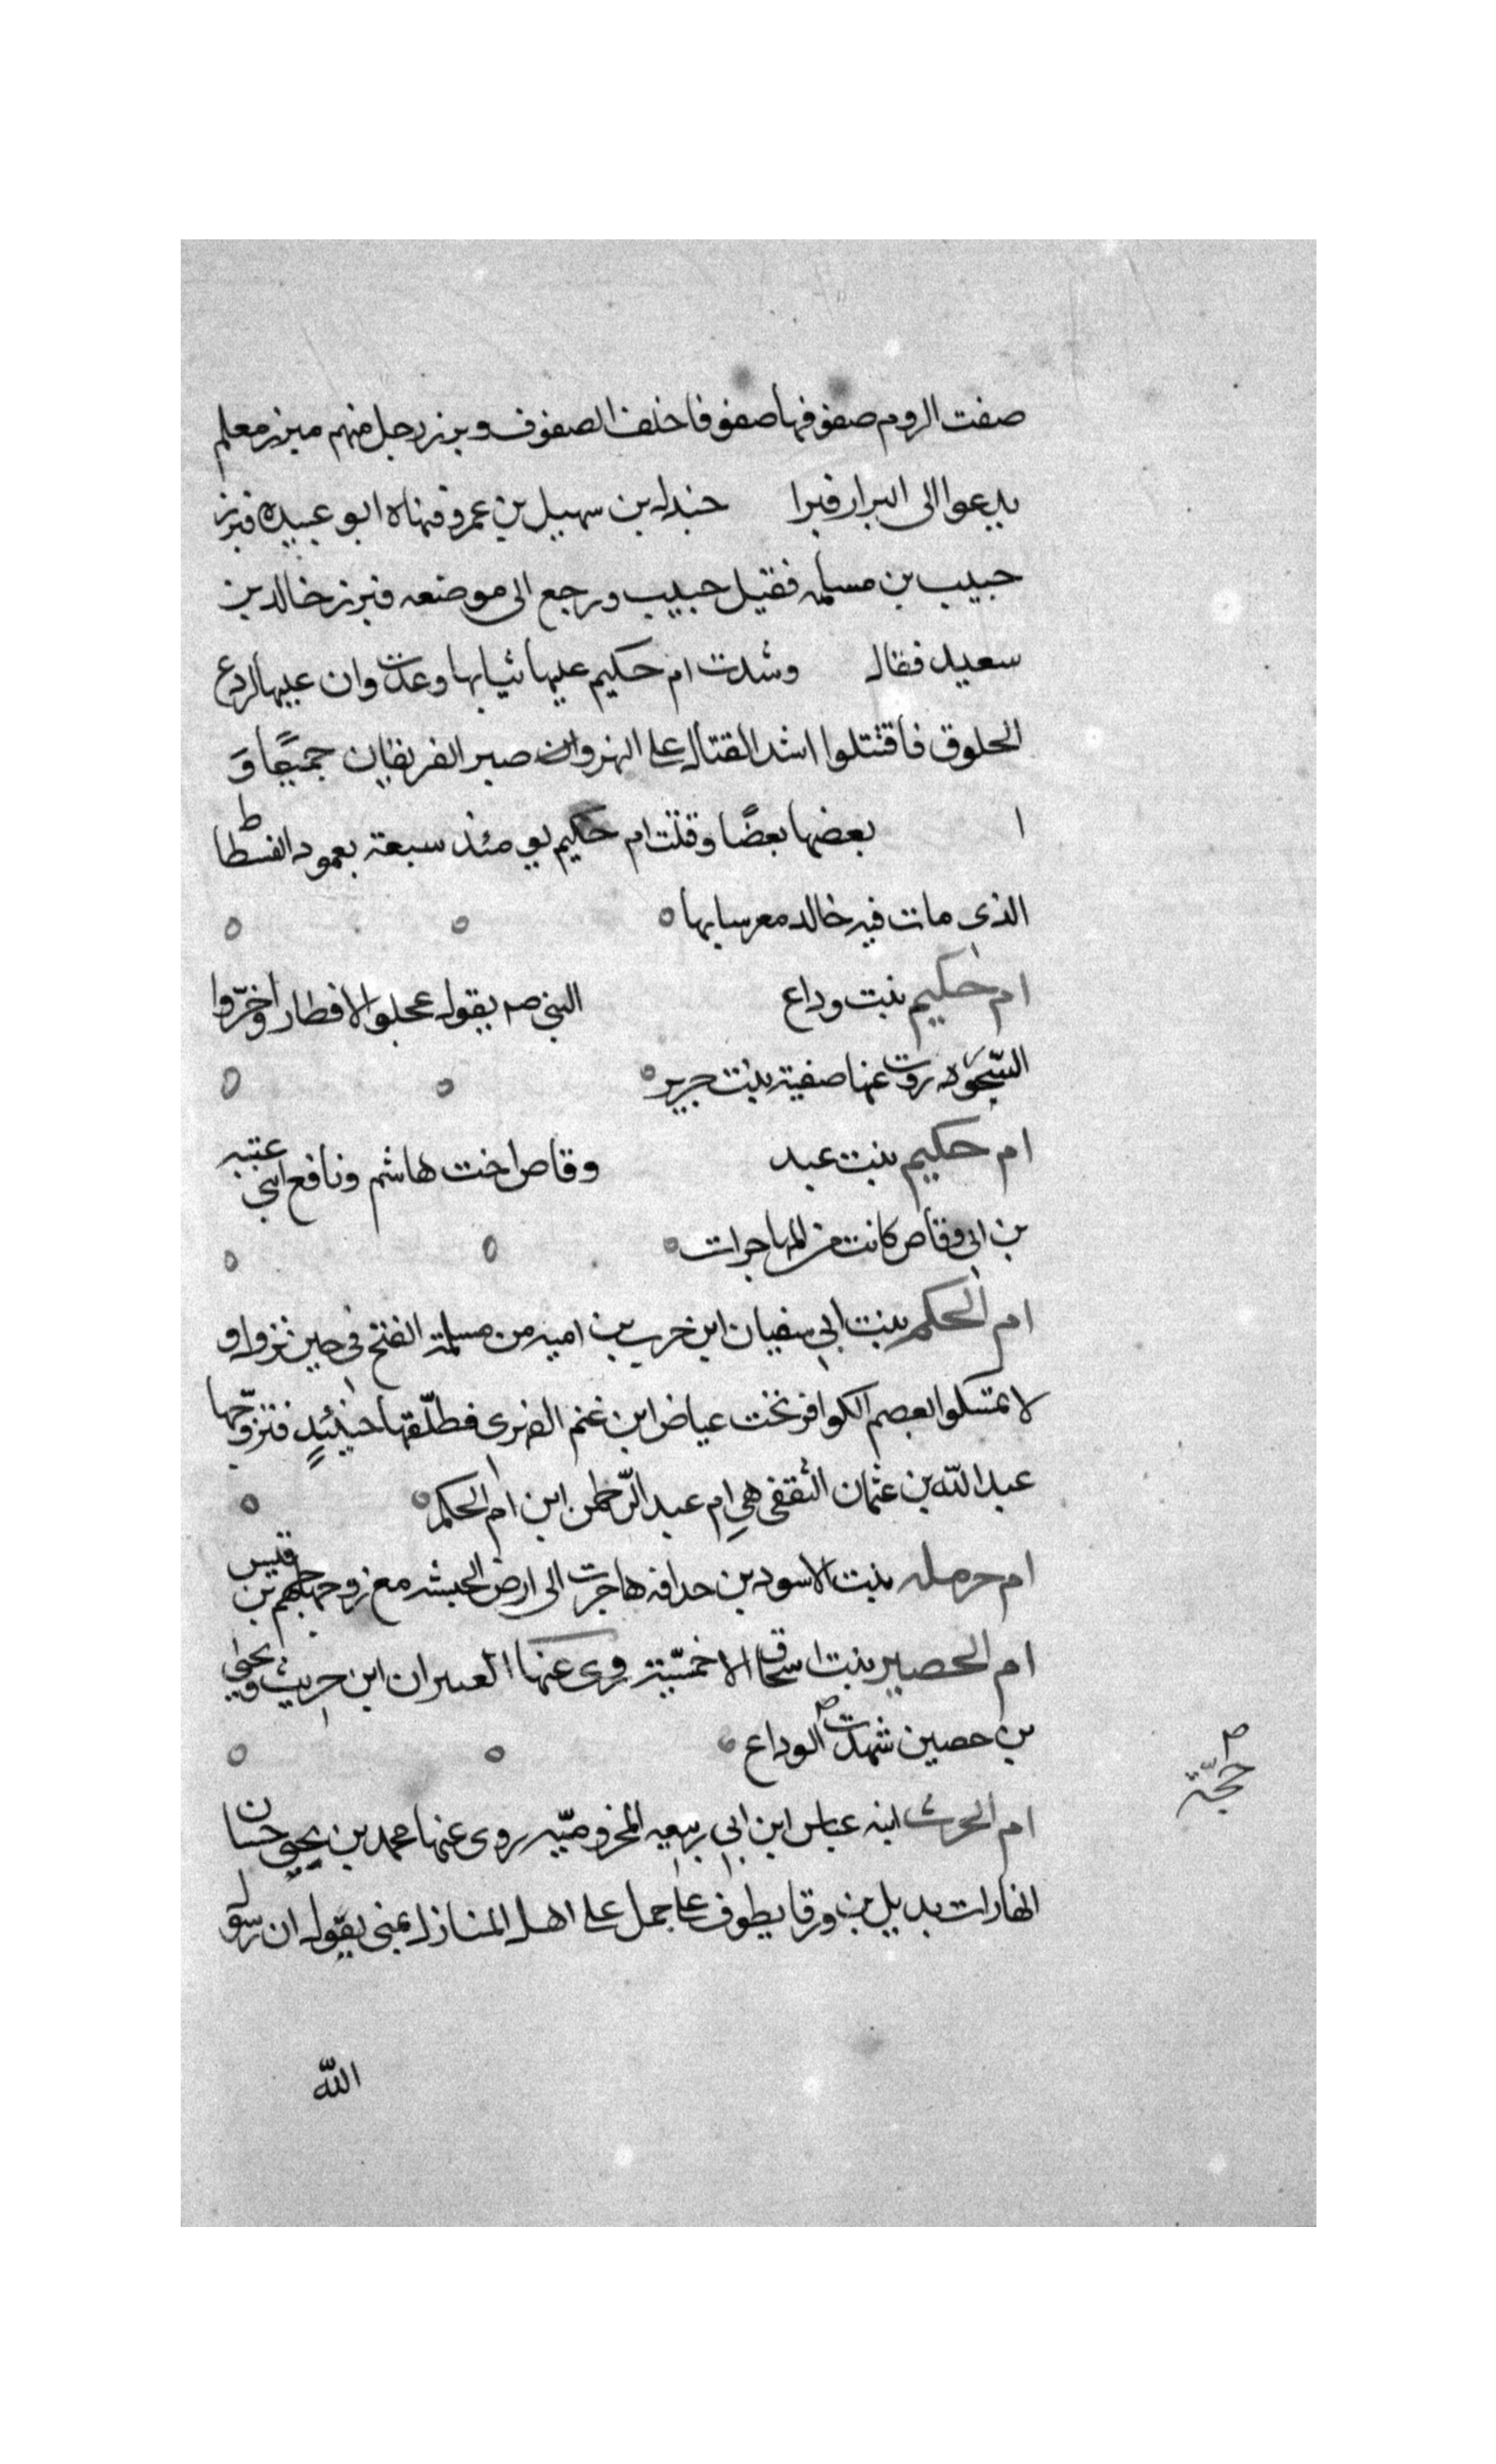 صفت الروم صفوفها صفوفا خلف الصفوف وبرز رجل منهم مبرز معلم
يدعوا الى البراز فبرا جندل بن سهيل بن عمرو فنهاه ابو عبيده فبرز
حبيب بن مسلمه فقتل حبيب ورجع الى موضعه فبرز خالد بن
سعيد فقال وشدت ام حكيم عليها ثيابها وعدت وان عليها لردع
الحلوق فاقتتلوا اشد القتال على النهر وان صبر الفريقان جميعًا وَ
ا بعضها بعضًا وقتلت ام حكيم يومئذ سبعة بعمود الفسطاط
الذى مات فيه خالد معرسا بها
ام حكيم بنت وداع النبى صم يقول عجلوا الافطار واخّروا
السّحور روت عنها صفية بنت جرير
ام حكيم بنت عبد وقاص اخت هاشم ونافع ابنى عتبه
بن ابى وقاص كانت من المهاجرات
ام الحكم بنت ابي سفيان ابن حرب بن اميه من مسلمة الفتح فى حين نزول و
لا تمسكوا بعصم الكوافر تحت عياض ابن غنم الفهرى فطلّقها حينئذٍ فتزوّجها
عبد اللّه بن عثمان الثقفى هي ام عبد الرّحمن ابن ام الحكم
ام حرمله بنت الاسود بن حدافه هاجرت الى ارض الحبشه مع زوجها جهم بن قيس
ام الحصين بنت اسحاق الاخمسّية روى عنها العيران ابن حريث ويحيى
بن حصين شهدت الوداع
حجّة
ام الحرث ابنه عباس ابن ابي ربيعه المخزوميّه روى عنها محمد بن يحيى حسان
انها رات بديل بن ورقا يطوف على جمل على اهل المنازل بمنى يقول ان رسول
اللّه